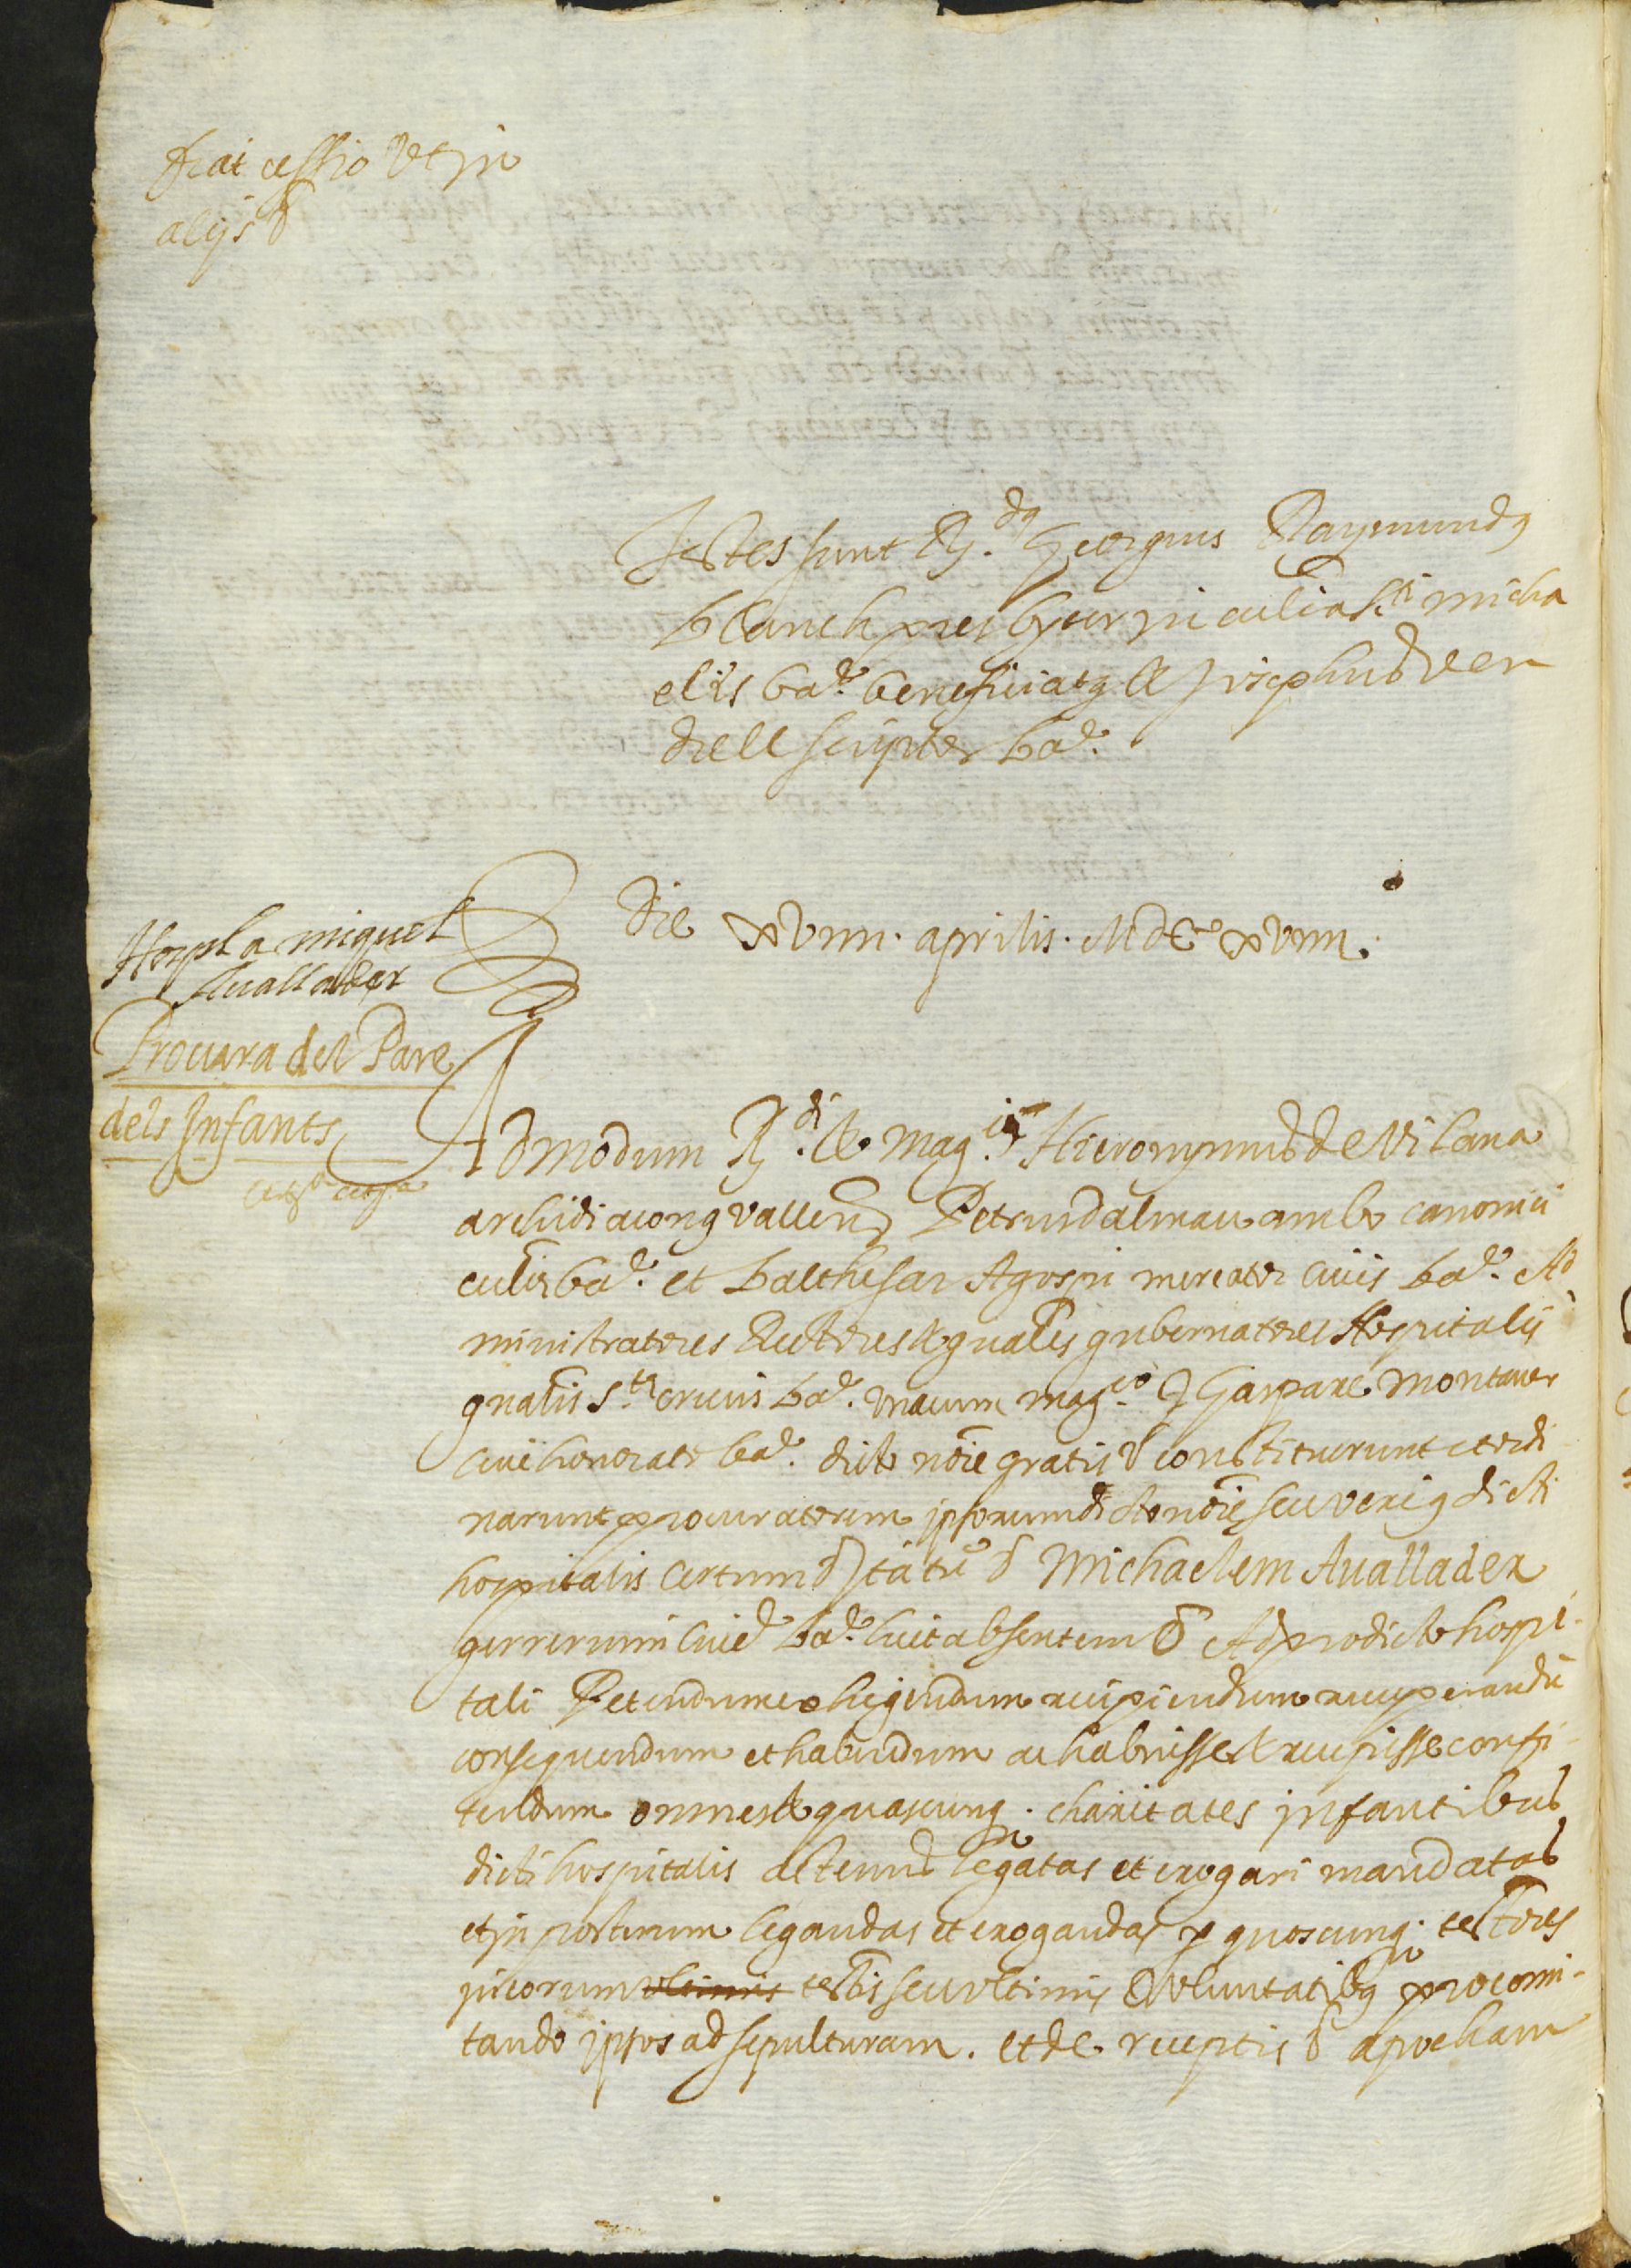 fiat cessio ut in
alijs &
Testes sunt R.dus Georgius Raymundus
blanch presbyter in ecclia S.ti micha
elis ba.e beneficiatus & Josephus ver
dell scriptor ba.e
Die xviiii. aprilis. MDC xviiii.
Hospl a miquel
Avallader
Procura del Pare
dels Infants
Admodum R.di & mag.ci Hieronymus de Vilana
archidiaconus vallen Petrus dalmau ambo canonici
ecclie ba.e et Balthesar Agospi mercator civis ba.e Ad
ministratores Rectores & gnales gubernatores Hospitalis
gnalis S.te crucis ba.e unacum mag.co J Gaspare montaner
cive honorato ba.e dicto noie gratis & constituerunt et ordi
narunt procuratorem ipsorum dicto noie seu verius dicti
hospitalis certum & Itatu & Michaelem Avallader
gerrerium civē ba.e licet absentem & Ad pro dicto hospi-
tali Petendum exhigendum recipiendum recuperandū
consequendum et habendum ac habuisse & recepisse confi-
tendum omnes & quascunq. charitates infantibus
dicti hospitalis actenus legatas et erogari mandatas
et in posterum legandas et erogandas p quoscunq. testores
in eorum ultimis testis seu ultimis voluntatibus pro comi-
tando ipsos ad sepulturam. et de receptis & apocham